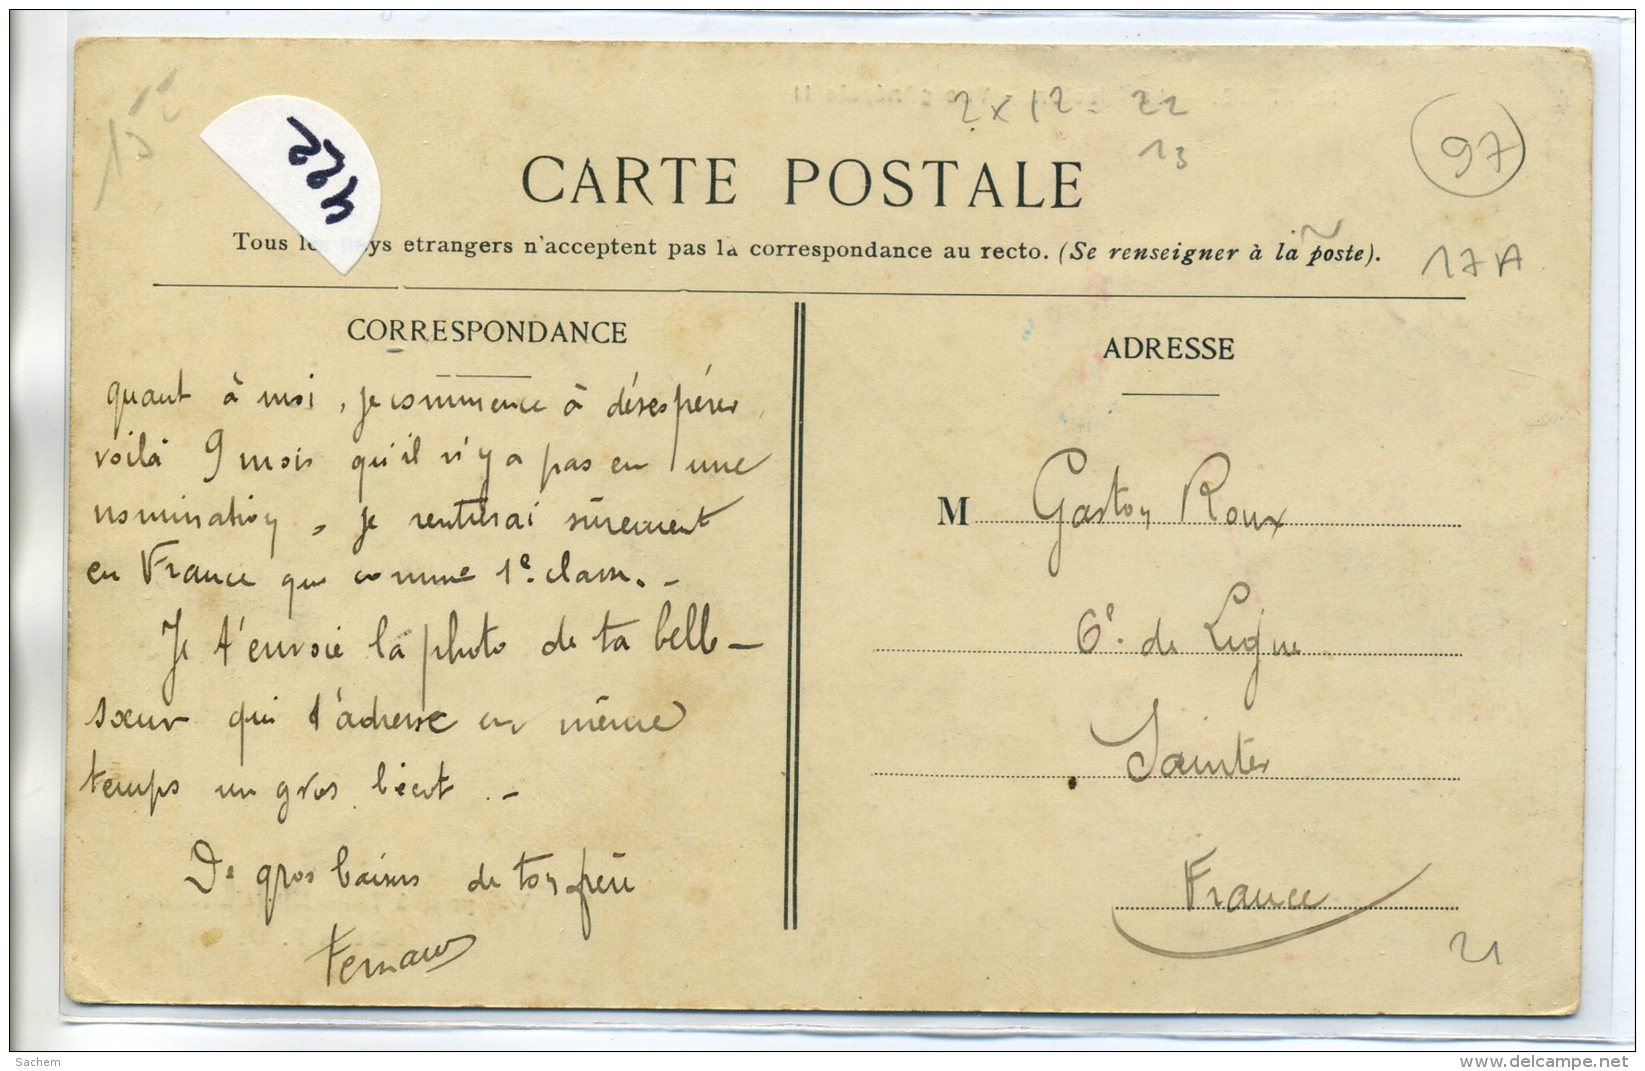 15
422
2 x 12 = 22
13
97
17A
CARTE POSTALE
Tous les pays etrangers n'acceptent pas la correspondance au recto. (Se renseigner à la poste).
CORRESPONDANCE
quant à moi, je commence à désespérer
voilà 9 mois qu'il n'y a pas eu une
nomination, je rentrerai sûrement
en France que comme 1e. classe. -
Je t'envoie la photo de ta belle -
sœur qui t'adresse en même
temps un gros bécot. -
De gros baisers de ton frère
Fernand
ADRESSE
M Gaston Roux
6e. de Ligne
Saintes
France
21
Sachem
www.delcampe.net